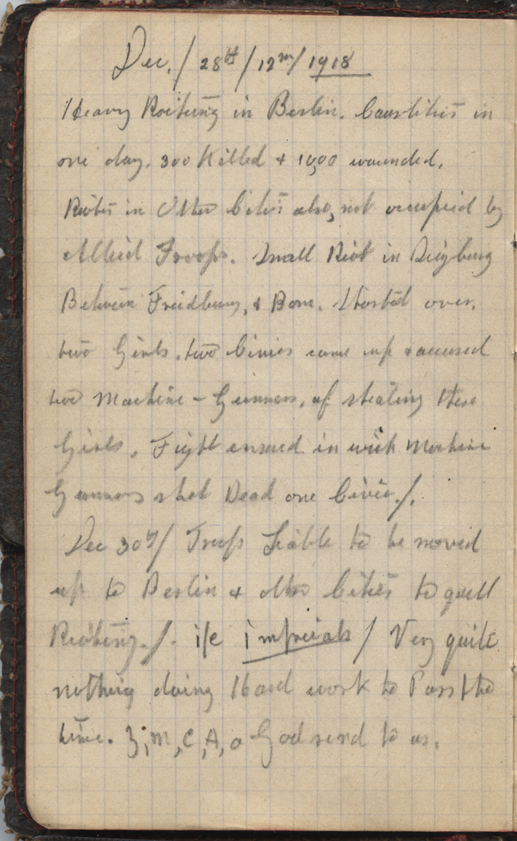 Dec./28th/12m/1918
Heavy Rioting in Berlin. Causlities in
one day. 300 Killed & 1000 wounded.
Riots in Other Cities also, not occupied by
Allied Troops. Small Riot in Seigburg
Between Freidburg, & Bonn. Started over.
two Girls. two Civies came up & accused
two Machine - Gunners, of stealing these
Girls. Fight ensued in wich Machine
Gunners shot Dead one Civie./.
Dec 30th/ Troops Liable to be moved
up to Berlin & other Cities to quell
Rioting./. i/e imperials / Very quite
nothing doing Hard work to Pass the
time. Y,M,C,A, a God send to us.